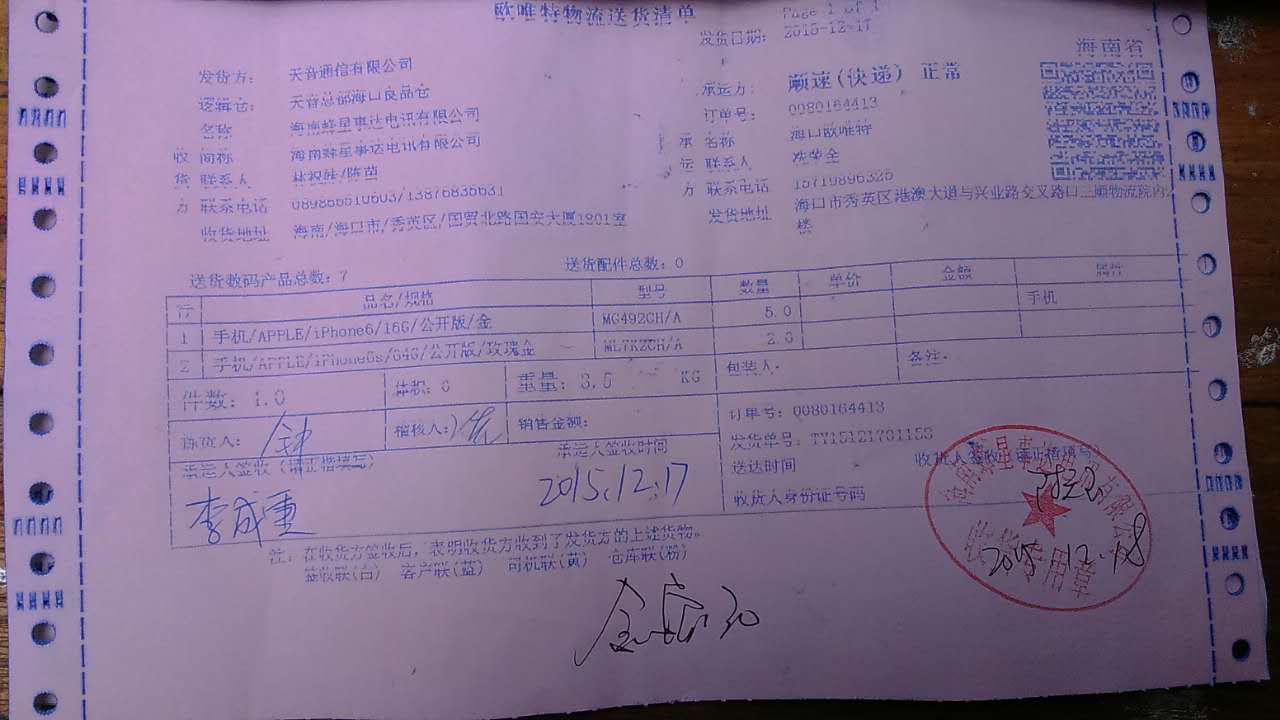 欧唯特物流送货清单
Page 1 of 1
发货日期: 2015-12-17
海南省
发货方: 天音通信有限公司
承运方: 顺速(快递) 正常
逻辑仓: 天音总部海口良品仓
订单号: 0080164413
名称 海南蜂星事达电讯有限公司
承 名称 海口欧唯特
收 简称 海南蜂星事达电讯有限公司
运 联系人
货 联系人
方 联系电话 15719896326
方 联系电话
发货地址 海口市秀英区港澳大道与兴业路交叉路口三顺物流院内
楼
收货地址 海南/海口市/秀英区/国贸北路国安大厦1801室
送货数码产品总数: 7
送货配件总数: 0
行 品名/规格 型号 数量 单价 金额 属性
1 手机/APPLE/iPhone6/16G/公开版/金 MG492CH/A 5.0 手机
2 手机/APPLE/iPhone6s/64G/公开版/玫瑰金 ML7K2CH/A 2.0
件数: 1.0 体积: 0 重量: 3.5 KG 包装人: 备注:
拣货人: 稽核人: 销售金额: 订单号: 0080164413
承运人签收(请正楷填写) 承运人签收时间 发货单号: TY15121701153
李成重 2015.12.17
送达时间
收货人签收(请正楷填写)
收货人身份证号码
2015.12.18
收货专用章
注: 在收货方签收后, 表明收货方收到了发货方的上述货物。
签收联(白) 客户联(蓝) 司机联(黄) 仓库联(粉)